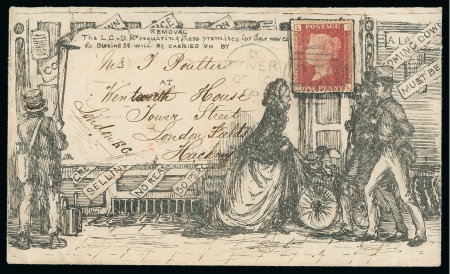 REMOVAL
The L.C.& D. Ry requiring these premises for their new
the Business WILL BE CARRIED ON BY
J Poulter
AT
Wentworth House
Tower Street
London Fields
Hackney
POSTAGE
ONE PENNY
COMING DOWN
MUST BE
SELLING